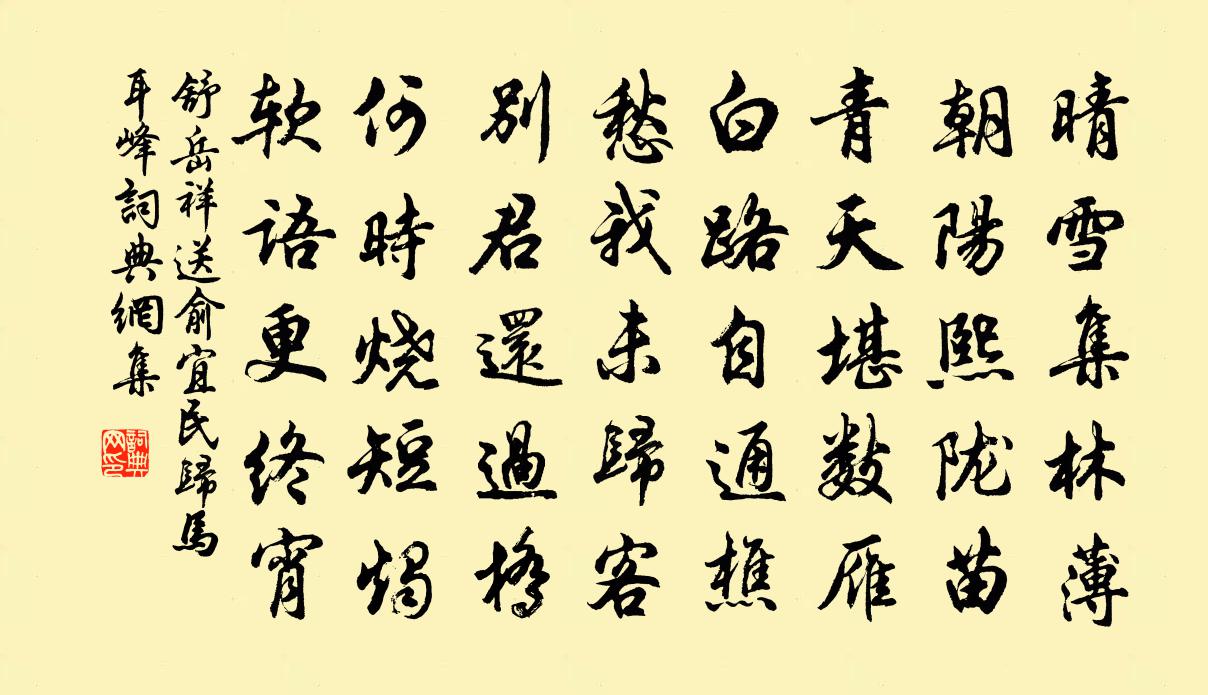 晴雪集林薄
朝陽熙陇苗
青天堪数雁
白路自通樵
愁我未歸客
别君還過橋
何時烧短燭
软語更终宵
舒岳祥送俞宜民歸馬
耳峰詞典網集
詞典网印